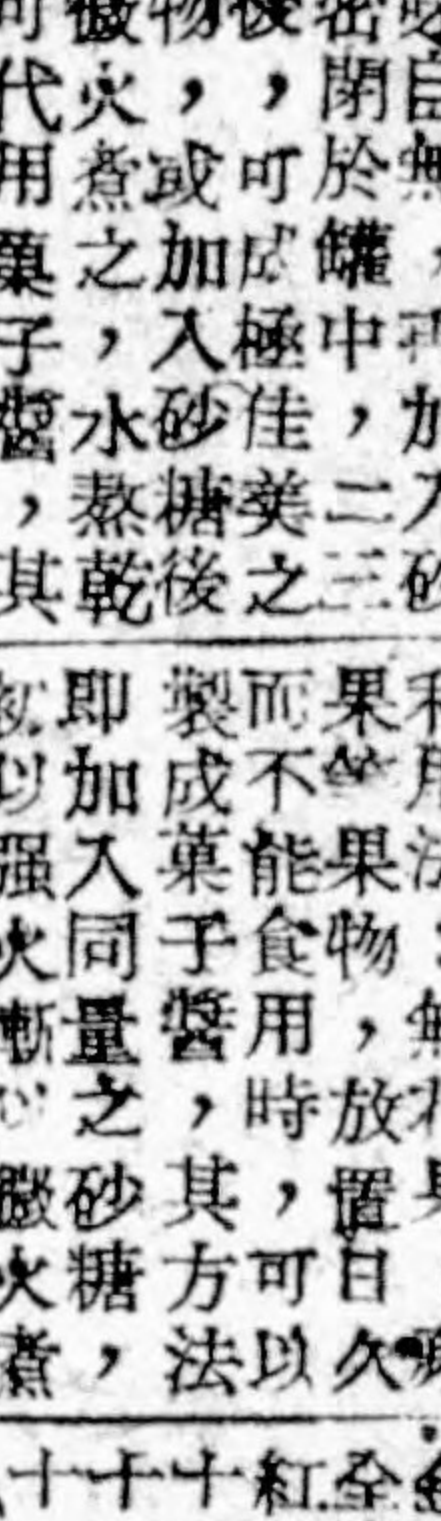 自無，再加入砂
密閉於罐中，二三
後，可成極佳美之
物，或加入砂糖後
微火煮之，水熬乾
可代用菓子醬，其
利用法：無花
果等果物，放置日久
而不能食用時，可以
製成菓子醬，其方法
即加入同量之砂糖，
初以强火漸以微火煮
全
紅
十
十
十